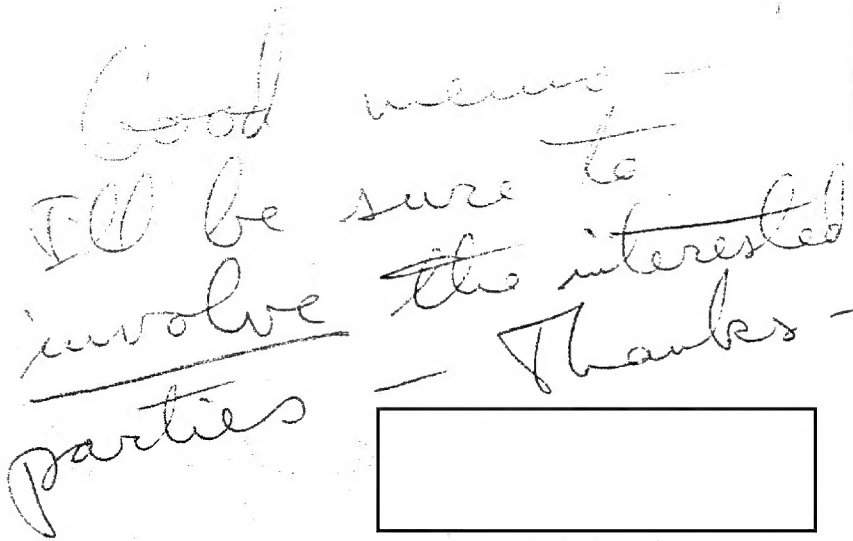 Good memo -
I'll be sure to
involve the interested
parties — Thanks -